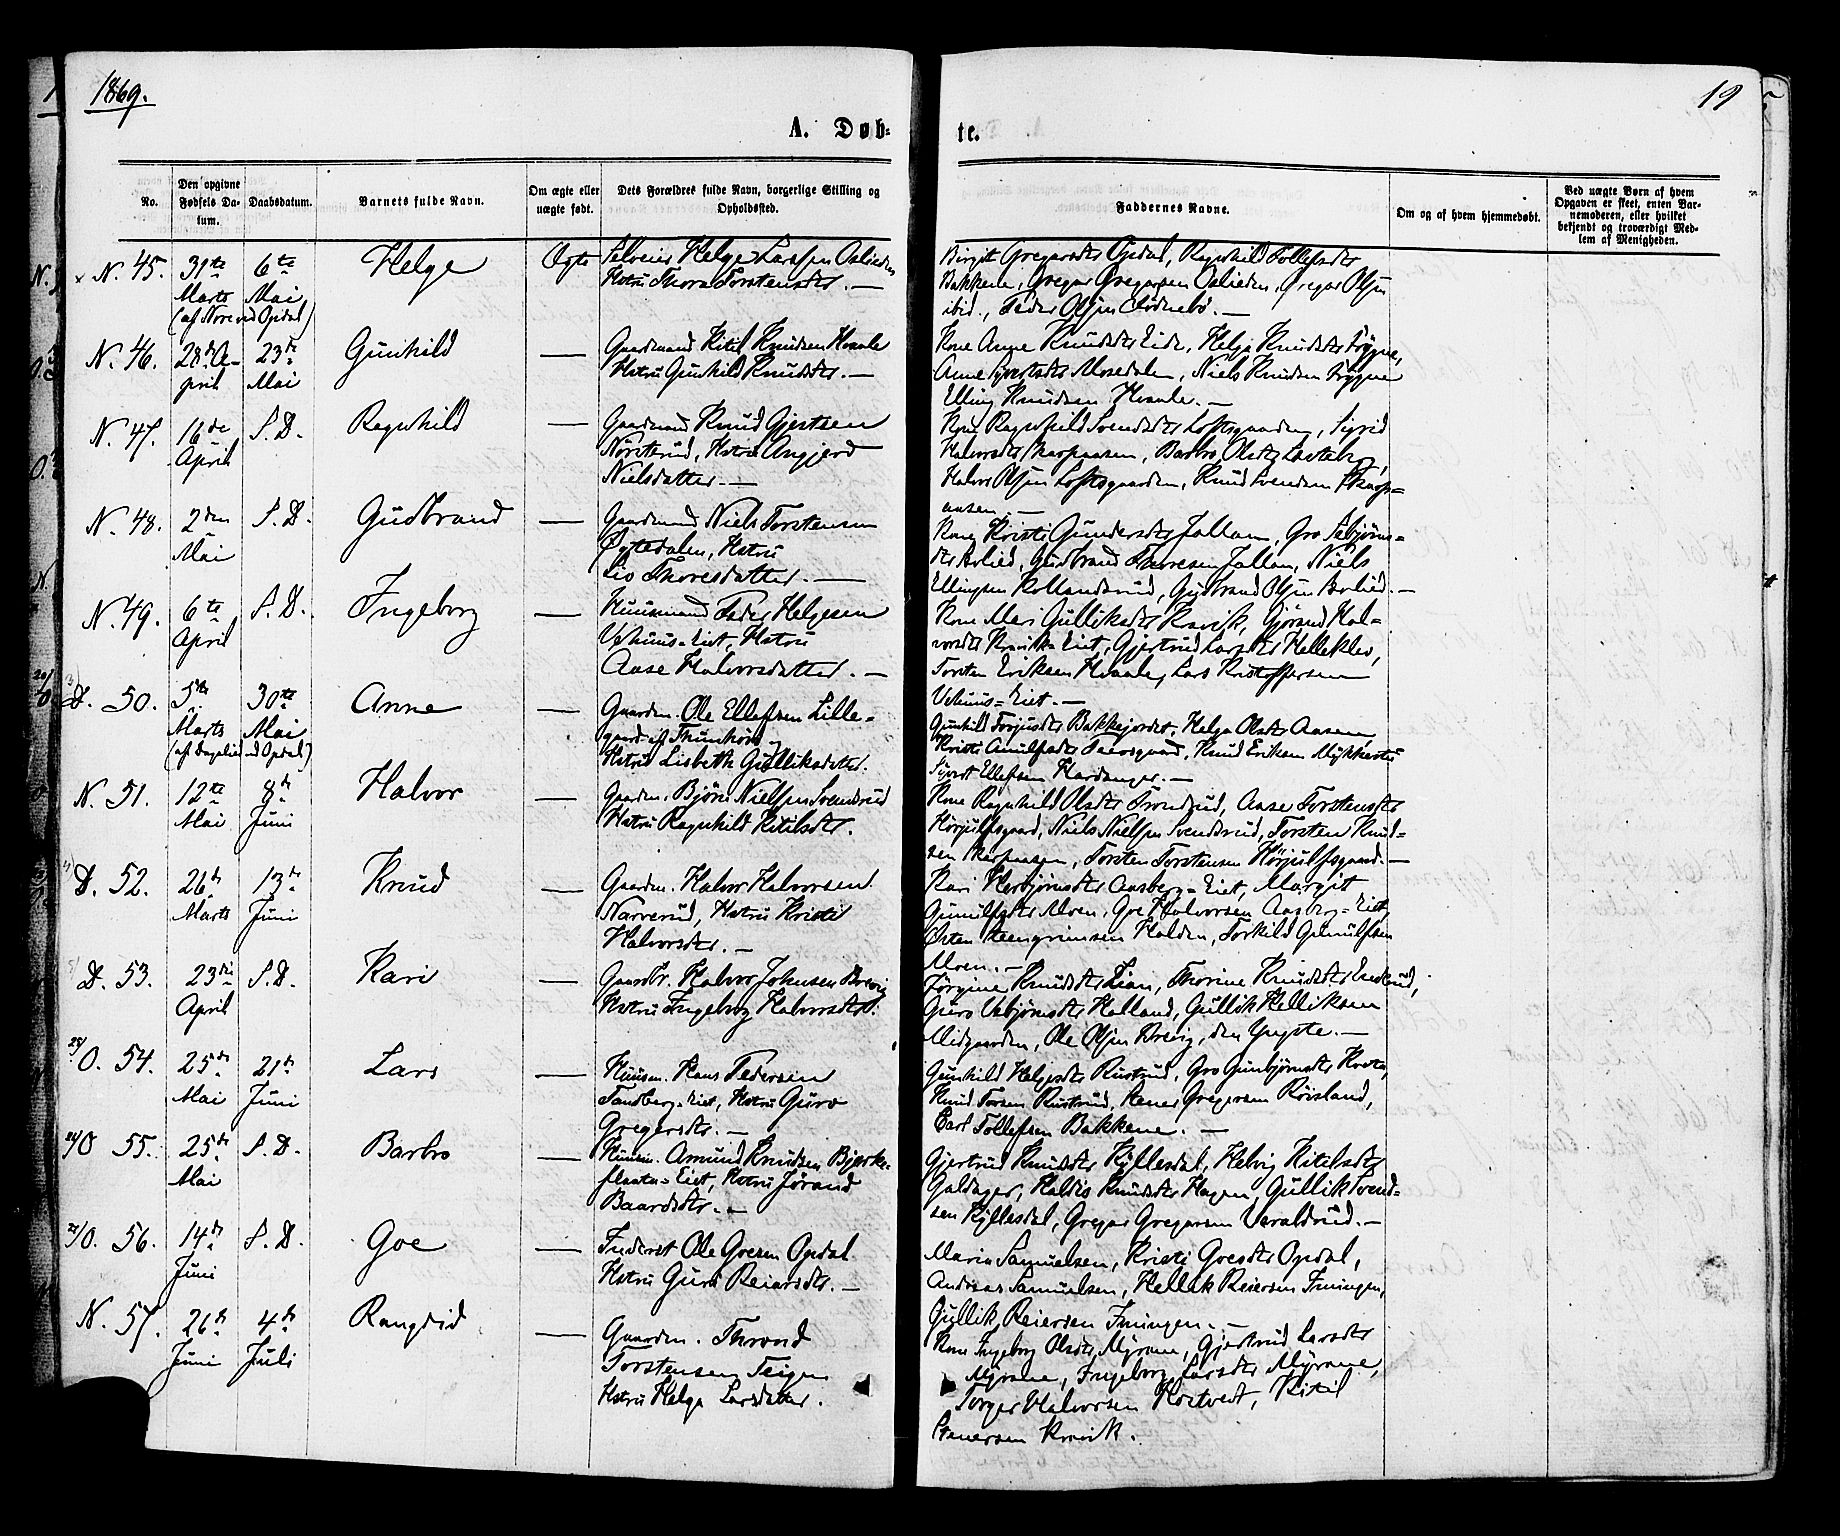 1869.
19
A. Døb-
te.
No.
Den opgivne Fødsels Da-tum.
Daabsdatum.
Barnets fulde Navn.
Om ægte eller uægte født.
Dets Forældres fulde Navn, borgerlige Stilling og Opholdssted.
Faddernes Navne.
Om og af hvem hjemmedøbt.
Ved uægte Børn af hvem Opgaven er skeet, enten Bar-nemoderen, eller hvilket bekjendt og troværdigt Med-lem af Menigheden.
N. 45. 31te Marts 6te Mai Helge Ægte
(af Nore ved Opdal)
Selveier Helge Larssen Oslieden
Hstru Thora Torstensdtr. —
Birgit Gregarsdtr Opdal, Ragnhild Tollefsdtr
Bakkene, Gregar Gregarsen Oslieden, Gregar Olsen
ibid., Peder Olsen
N. 46. 28de April 23de Mai Gunhild —
Gaardmand Kitil Knudsen Hvaale
Hstru Gunhild Knudsdtr. —
Kone Anne Knudsdtr Eide, Helga Knudsdtr Tøgne,
Anne Mosedalen, Niels Knudsen Tøgne
Elling Knudsen Hvaale. —
N. 47. 16de April S. D. Ragnhild —
Gaardmand Knud Gjertsen
Nørsterud, Hstru Angjerd
Nielsdatter. —
Kone Ragnhild Svendsdtr Loftsgaarden, Sigrid
Halvorsdtr Skarpaasen, Barbro Olsdtr
Halvor Olsen Loftsgaarden, Knud Svendsen Skarp=
aasen. —
N. 48. 2den Mai S. D. Gudbrand —
Gaardmand Niels Torstensen
Øytedalen, Hstru
Liv Thoresdatter. —
Kone Kristi Gundersdtr Jallan, Gro Asbjørns=
dtr Borlied, Gudbrand Thoresen Jallan, Niels
Ellingsen Rollandsrud, Gudbrand Olsen Borlied. —
N. 49. 6te April S. D. Ingeborg —
Huusmand Peder Helgesen
Vehuus=Eiet, Hstru
Aase Halvorsdatter. —
Kone Mari Gulliksdtr Kravik, Gjørand Hal=
vorsdtr Kravik=Eiet, Gjertrud Larsdtr Helleklev,
Torsten Eriksen Hvaale, Lars Kristoffersen
Vehuus=Eiet. —
D. 50. 5te Marts 30te Mai Anne —
(af Dagalied ved Opdal)
Gaardm. Ole Ellefsen Lille=
gaard af Thunhovd
Hstru Lisbeth Gulliksdatter.
Gunhild Torjusdtr Bakkejordet, Helga Olsdtr Aasen
Kristi Arnulfsdtr Knud Eriksen
Sivert Ellefsen Hardanger. —
N. 51. 12te Mai 8de Juni Halvor —
Gaardm. Bjørn Nielsen Svendsrud
Hstru Ragnhild Kitilsdtr.
Kone Ragnhild Olsdtr Trondrud, Aase Torstensdtr
Hørjulfsgaard, Niels Nielsen Svendsrud, Torsten Knud=
sen Skarpaasen, Torsten Torstensen Hørjulfsgaard. —
D. 52. 26de Marts 13de Juni Knud —
Gaardm. Halvor Halvorsen
Narverud, Hstru Kristi
Halvorsdtr. —
Kari Herbjørnsdtr Aasberg=Eiet, Margit
Gunulfsdtr Moen, Goe Halvorsen Aasberg=Eiet,
Østen Steengrimsen Halden, Torkild Gunulfsen
Moen. —
D. 53. 23die April S. D. Kari —
Gaardbr. Halvor Johnsen Brevig
Hstru Ingeborg Halvorsdtr.
Jørgine Knudsdtr Lian, Thorine Knudsdtr
Guro Asbjørnsdtr Halland, Gullik Helliksen
Midgaarden, Ole Olsen Brevig, den Yngste. —
O. 54. 25de Mai 21de Juni Lars —
Huusm. Hans Pedersen
Tandberg=Eiet, Hstru Guro
Gregersdtr. —
Gunhild Helgesdtr Rustrud, Gro Gunbjørnsdtr
Knud Torsen Rustrud, Stener Gregersen Røisland,
Carl Tollefsen Bakkene. —
O 55. 25de Mai S. D. Barbro —
Huusm. Amund Knudsen Bjerke=
flaata=Eiet, Hstru Jørand
Baardsdtr. —
Gjertrud Knudsdtr Kjillesdal, Helvig Kitilsdtr
Galdager, Haldis Knudsdtr Hagen, Gullik Svend=
sen Kjillesdal, Gregar Gregarsen Varaldrud. —
O. 56. 14de Juni S. D. Goe —
Inderst Ole Goesen Opdal
Hstru Guri Reiarsdtr. —
Maria Samuelsen, Kristi Goesdtr Opdal,
Andreas Samuelsen, Hellek Reiersen Imingen,
Gullik Reiersen Imingen. —
N. 57. 26de Juni 4de Juli Rangdid —
Gaardm. Thrond
Torstensen Teigen
Hstru Helga Larsdatter.
Kone Ingeborg Olsdtr Myrane, Gjertrud Larsdtr
Myrane, Ingeborg Larsdtr Myrane,
Torger Halvorsen Kostvedt, Kitil
Stenersen Kravik.